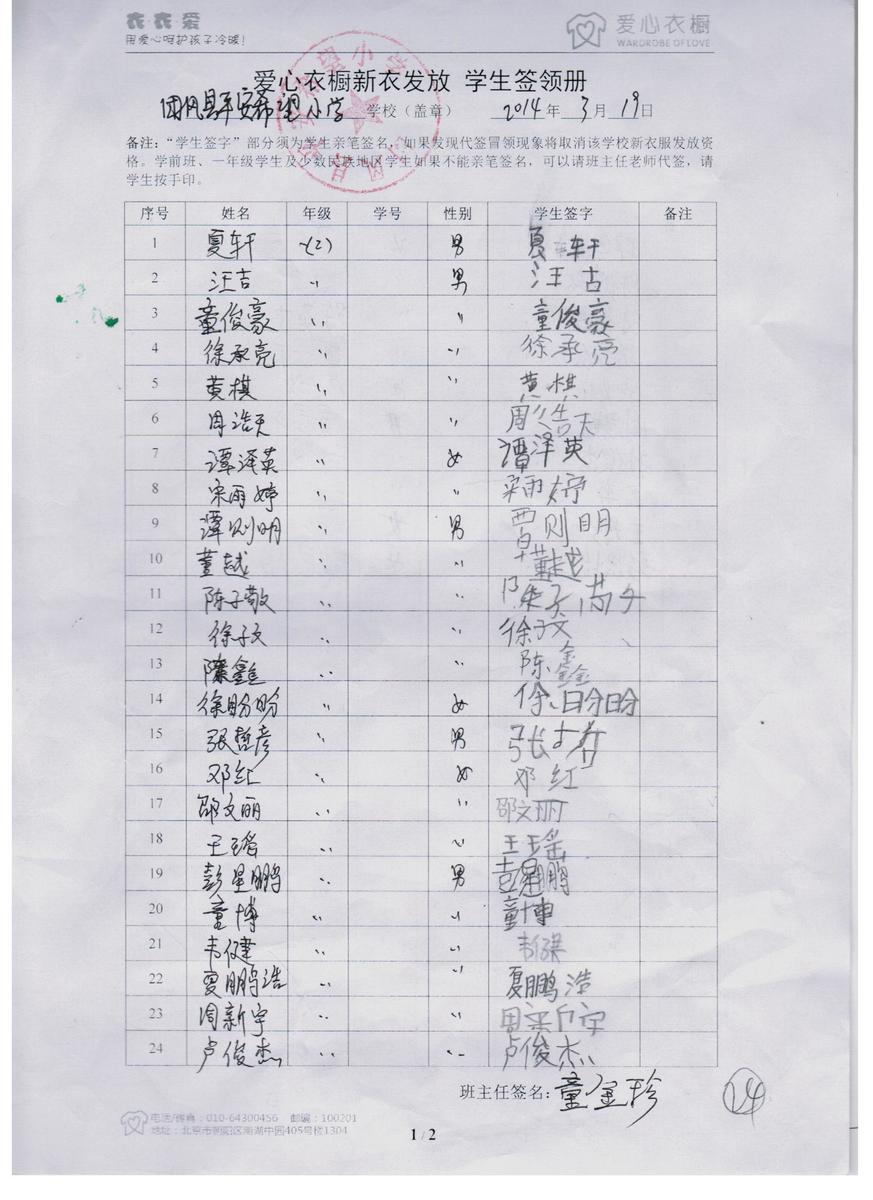 衣·衣·爱
用爱心呵护孩子冷暖！
爱心衣橱
WARDROBE OF LOVE
爱心衣橱新衣发放 学生签领册
团风县平安希望小学 学校（盖章） 2014年 3月 19日
备注：“学生签字”部分须为学生亲笔签名，如果发现代签冒领现象将取消该学校新衣服发放资
格。学前班、一年级学生及少数民族地区学生如果不能亲笔签名，可以请班主任老师代签，请
学生按手印。
序号 姓名 年级 学号 性别 学生签字 备注
1 夏轩 一(2) 男 夏轩
2 汪吉 〃 男 汪古
3 童俊豪 〃 〃 童俊豪
4 徐承亮 〃 〃 徐承亮
5 黄棋 〃 〃 黄棋
6 周浩天 〃 〃 周浩天
7 谭泽英 〃 女 谭泽英
8 宋雨婷 〃 〃 宋雨婷
9 谭则明 〃 男 覃则明
10 董越 〃 〃 董越
11 陈子敬 〃 〃 陈子
12 徐子文 〃 〃 徐子文
13 陈鑫 〃 〃 陈鑫
14 徐盼盼 〃 女 徐盼盼
15 张哲彦 〃 男 张
16 邓红 〃 女 邓红
17 邵文丽 〃 〃 邵文丽
18 王瑶 〃 〃 王瑶
19 彭星鹏 〃 男 彭星鹏
20 童博 〃 〃 童博
21 韦健 〃 〃 韦
22 夏鹏浩 〃 〃 夏鹏浩
23 周新宇 〃 〃 周新宇
24 卢俊杰 〃 〃 卢俊杰
班主任签名：童金珍
24
电话/传真：010-64300456 邮编：100201
地址：北京市朝阳区南湖中园405号楼1304
1 / 2